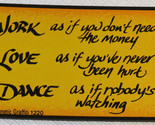 WORK as if you don't need
the money
LOVE as if you've never
been hurt
DANCE as if nobody's
watching
Graffiti 1220